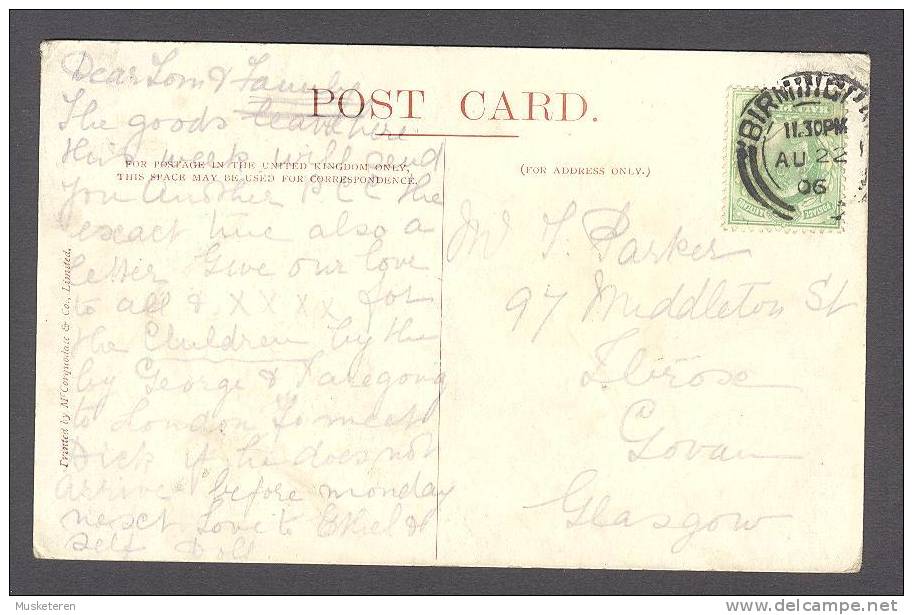 Dear Tom & Family
The goods leave here
this week will send
you Another P.C.C the
exact time also a
letter Give our love
to all & X X X X for
the Children by the
by George & I are going
to London To meet
Dick if he does not
arrive before monday
next Love to Ethel &
self Doll
POST CARD.
FOR POSTAGE IN THE UNITED KINGDOM ONLY,
THIS SPACE MAY BE USED FOR CORRESPONDENCE.
(FOR ADDRESS ONLY.)
Printed by McCorquodale & Co., Limited.
BIRMINGHAM
11.30PM
AU 22
06
Mr T. Parker
97 Middleton St
Ibrox
Govan
Glasgow
Musketeren
delcampe.net